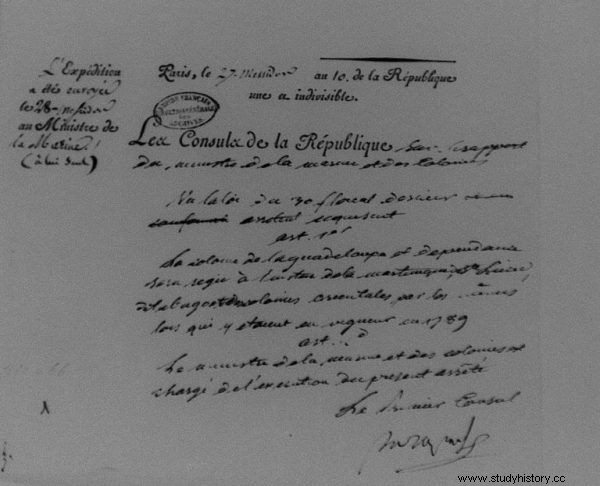 L'Expédition
a été envoyée
le 28 messidor
au Ministre de
la Marine
(à lui seul)
Paris, le 27 Messidor an 10. de la République
une et indivisible.
ARCHIVES
Les Consuls de la République, Sur le rapport
du ministre de la marine et des Colonies
Vu la loi du 30 floreal dernier
arrêtent ce qui suit
art. 1er
La colonie de la guadeloupe et dependances
sera regie à l'instar de la martinique, de Ste Lucie,
de tabago et des colonies orientales, par les mêmes
lois qui y etaient en vigueur en 1789
art. 2
Le ministre de la marine et des colonies est
chargé de l'execution du present arrêté
Le Premier Consul
www.studyhistory.cc